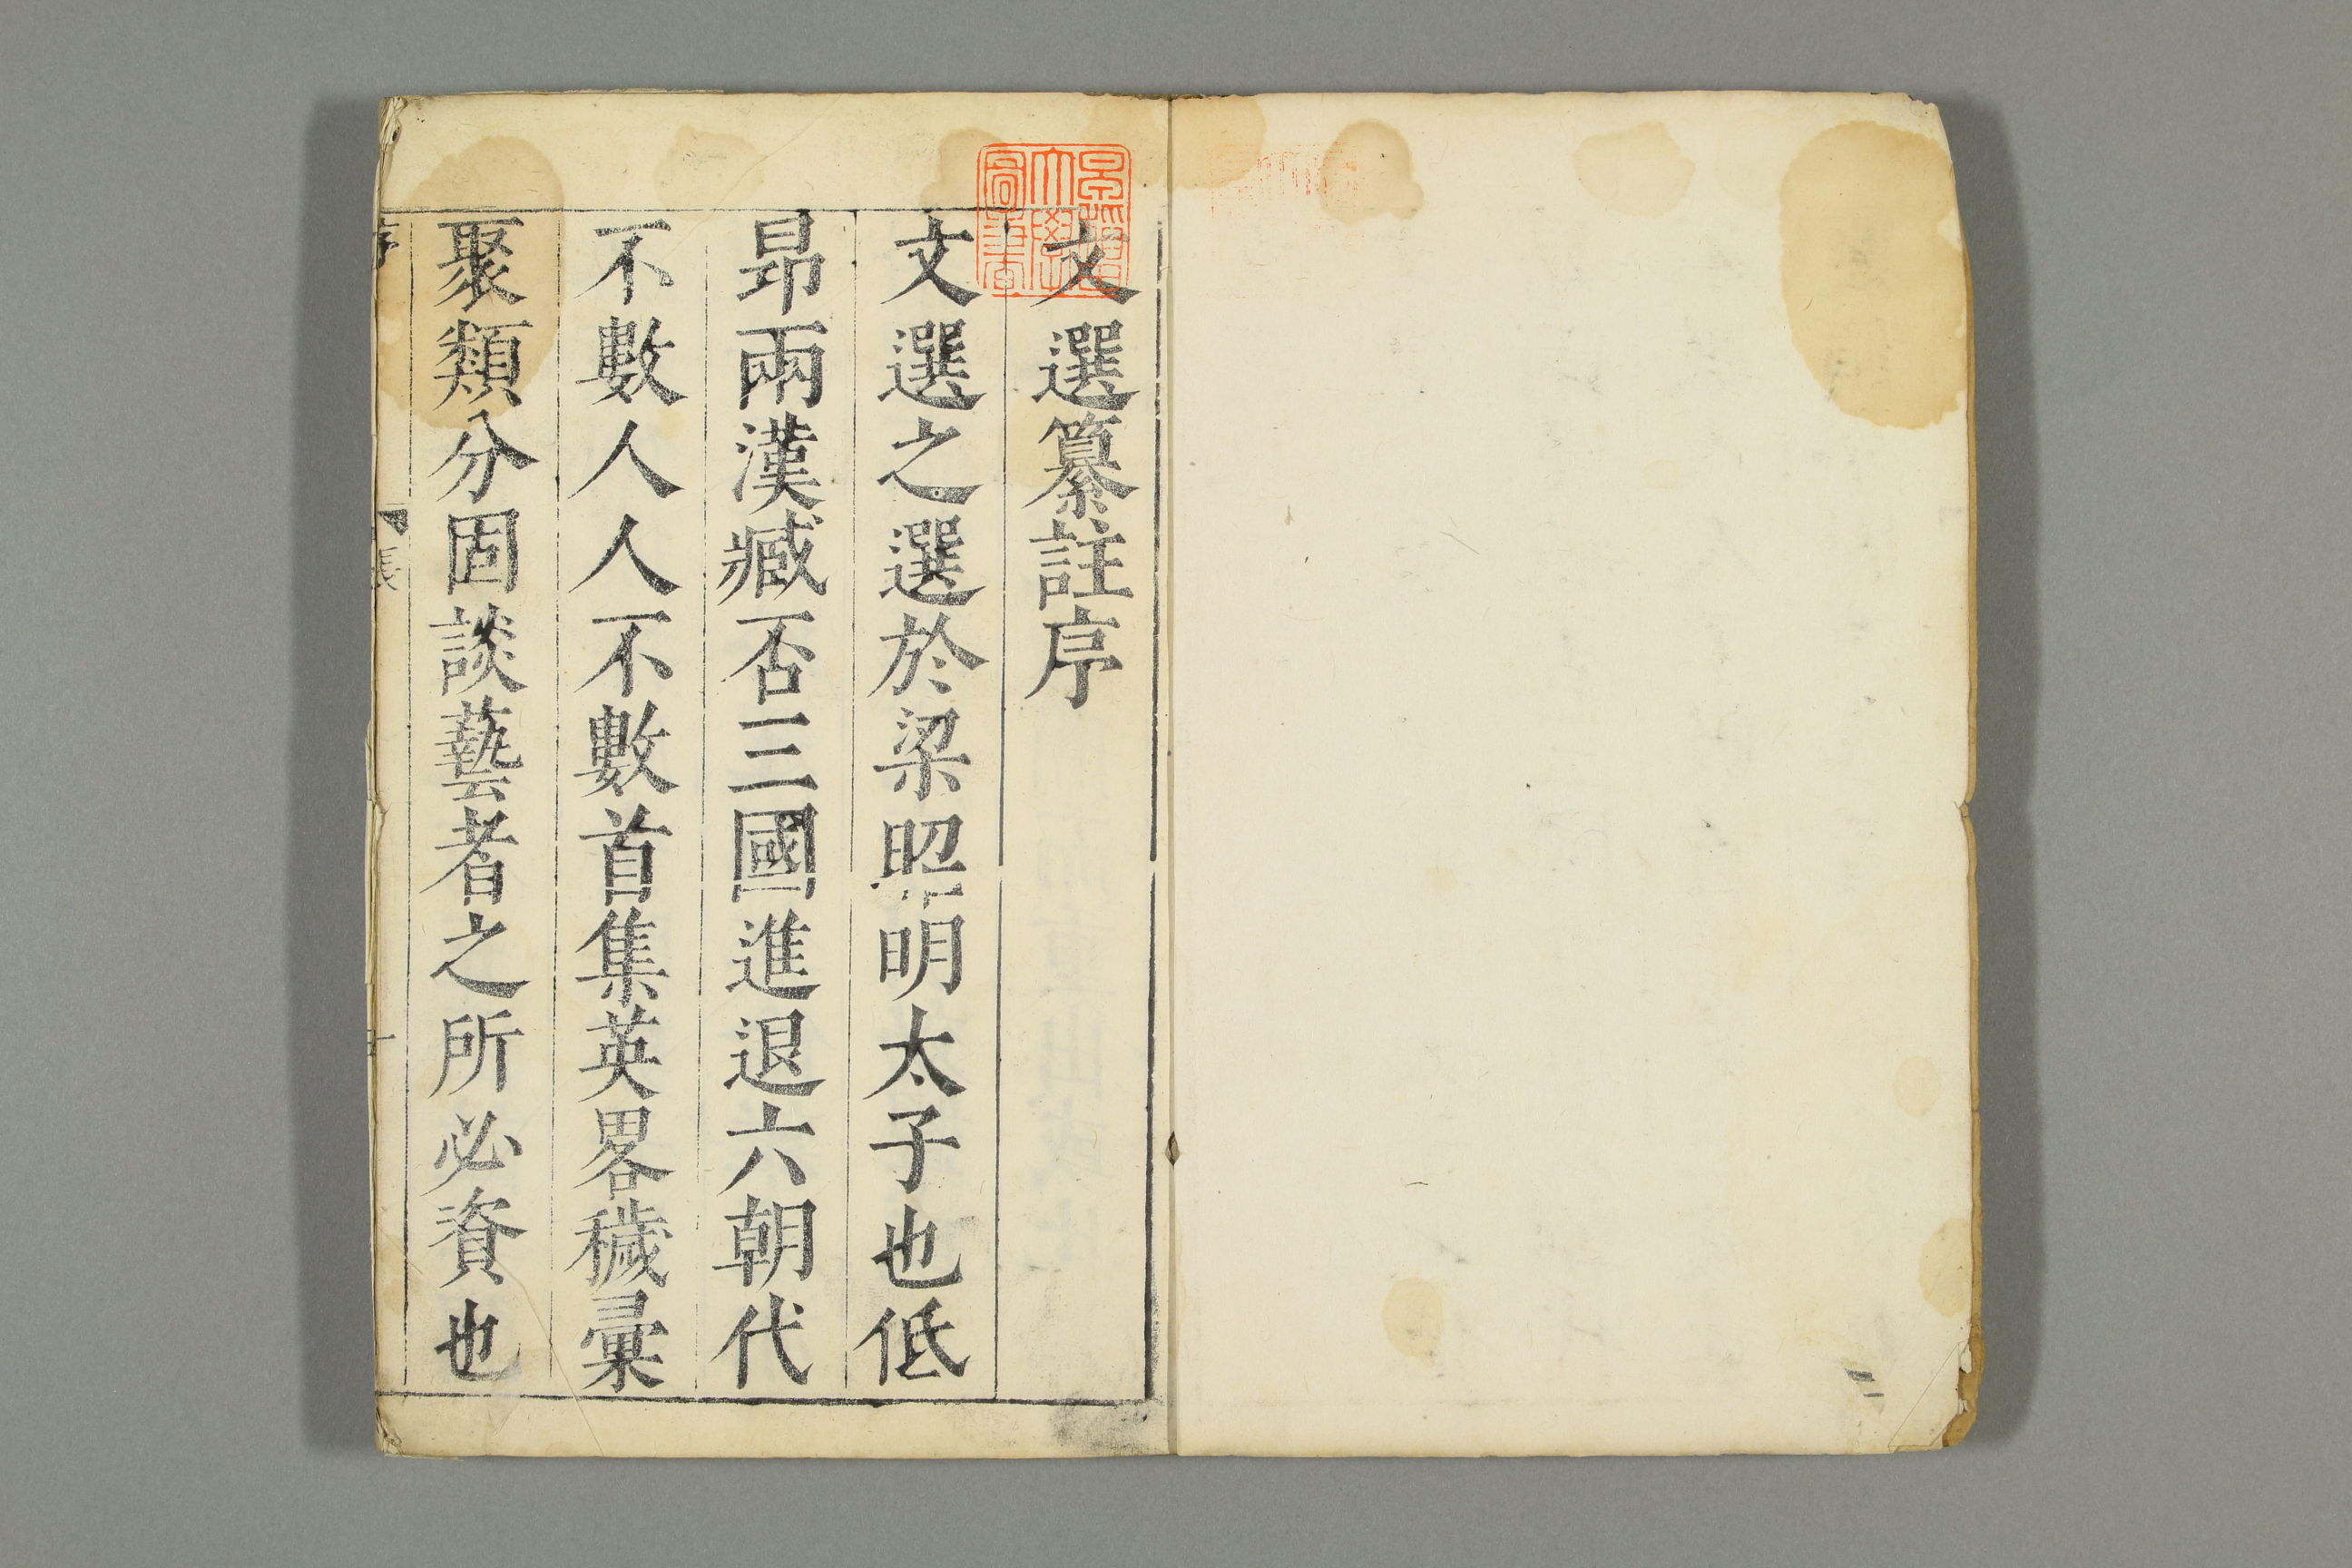 文選纂註序
文選之選於梁昭明太子也低
昻兩漢臧否三國進退六朝代
不數人人不數首集英畧穢彙
聚類分固談藝者之所必資也